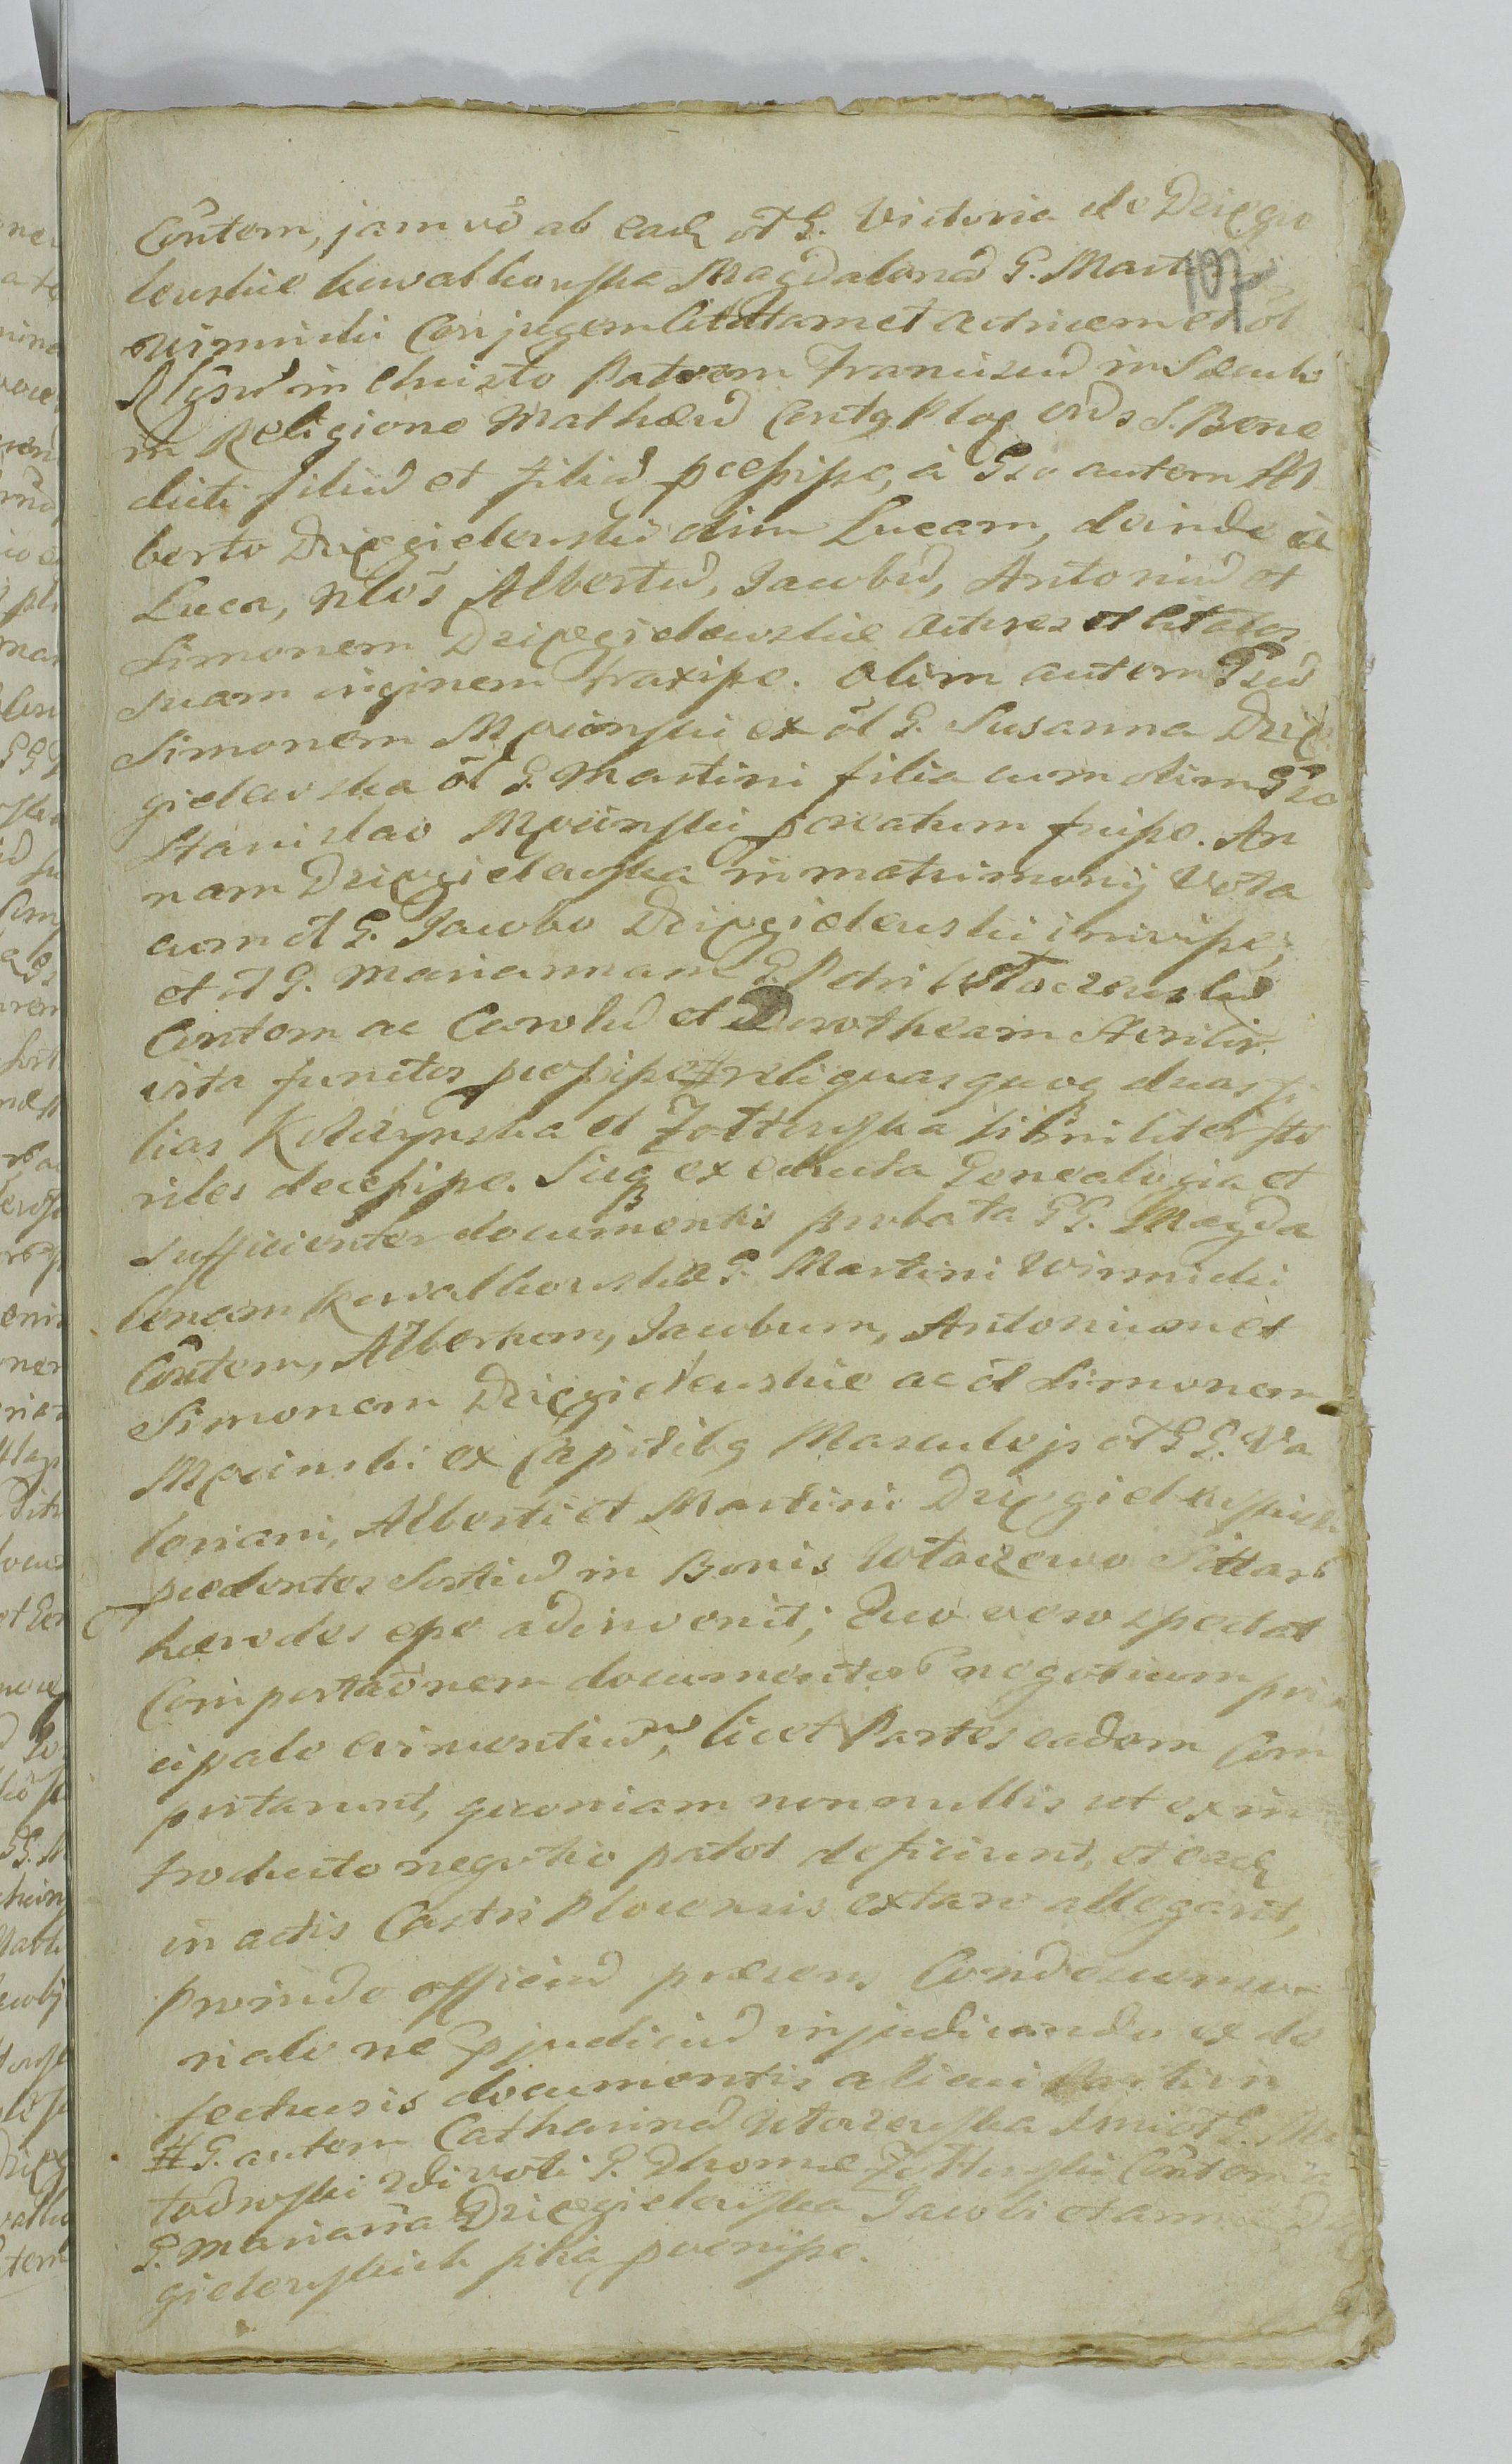 Côntem, jam vo ab eadq ol G. Victoria de Dzięgie
lewskie Kowalkowska Magdalenam G. Martini
Wirnicki Conjugem Citatam et actricem et ol
Rlgsum in Christo Patrem Franciscum in Sæculo
in Religione Mathæum Contq Ploc Ords S. Bene
dicti filium et filiam pcessisse, à Gso autem Al
berto Dzięgielewski olim Lucam, deinde à
Luca, nlos Albertum, Jacobum, Antonium et
Simonem Dzięgielewskie actores et citatos
suam originem traxisse. Olim autem Gsum
Simonem Mycinski ex ol G. Susanna Dzię
gielewska ol G. Martini filia cum olim Gso
Stanislao Mycinski pcreatum fuisse. An
nam Dzięgielewska in matrimonij Vota
cum ol G. Jacobo Dzięgielewski inivisse,
et ol G. Mariannam G. Petri Włoczewski
Contem ac Carolum et Dorotheam steriliter
vita functos pcessisse # reliquas quoq duas fi
lias Kolczynska et Zołtowska similiter ste
riles decessisse. Siq ex educta Genealogia et
sufficienter documentis probata GG. Magda
lenam Kowalkowska G. Martini Wirnicki
Côntem, Albertum, Jacobum, Antonium et
Simonem Dzięgielewskie ac ol Simonem
Mycinski ex Capitibq Masculejs ol GG. Va
leriani, Alberti et Martini Dzięgielewskich
pcedentes Sortium in Bonis Włoczewo Sittarb
hæredes esse adinvenit; Quo vero spectat
Comportaonem documentorb negotium prin
cipale evincentium, licet Partes eadem Com
portarunt, quoniam nonnullis ut ex in
troducto negotio patet deficiunt, et eadq
in actis Castri Plocensis extare allegarunt,
proinde officium præsens Condescenso
riale ne pjudicium injudicando ex de
fectuosis documentis alicui Parti in
# G. autem Catharinam Włoczewska Imi ol G.
todwski 2di voti G. Thomæ Zołtowski Côntem a
G. Mariana Dzięgielewska Jacobi et Annæ Dzię
gielewskich filia pvenisse.
107